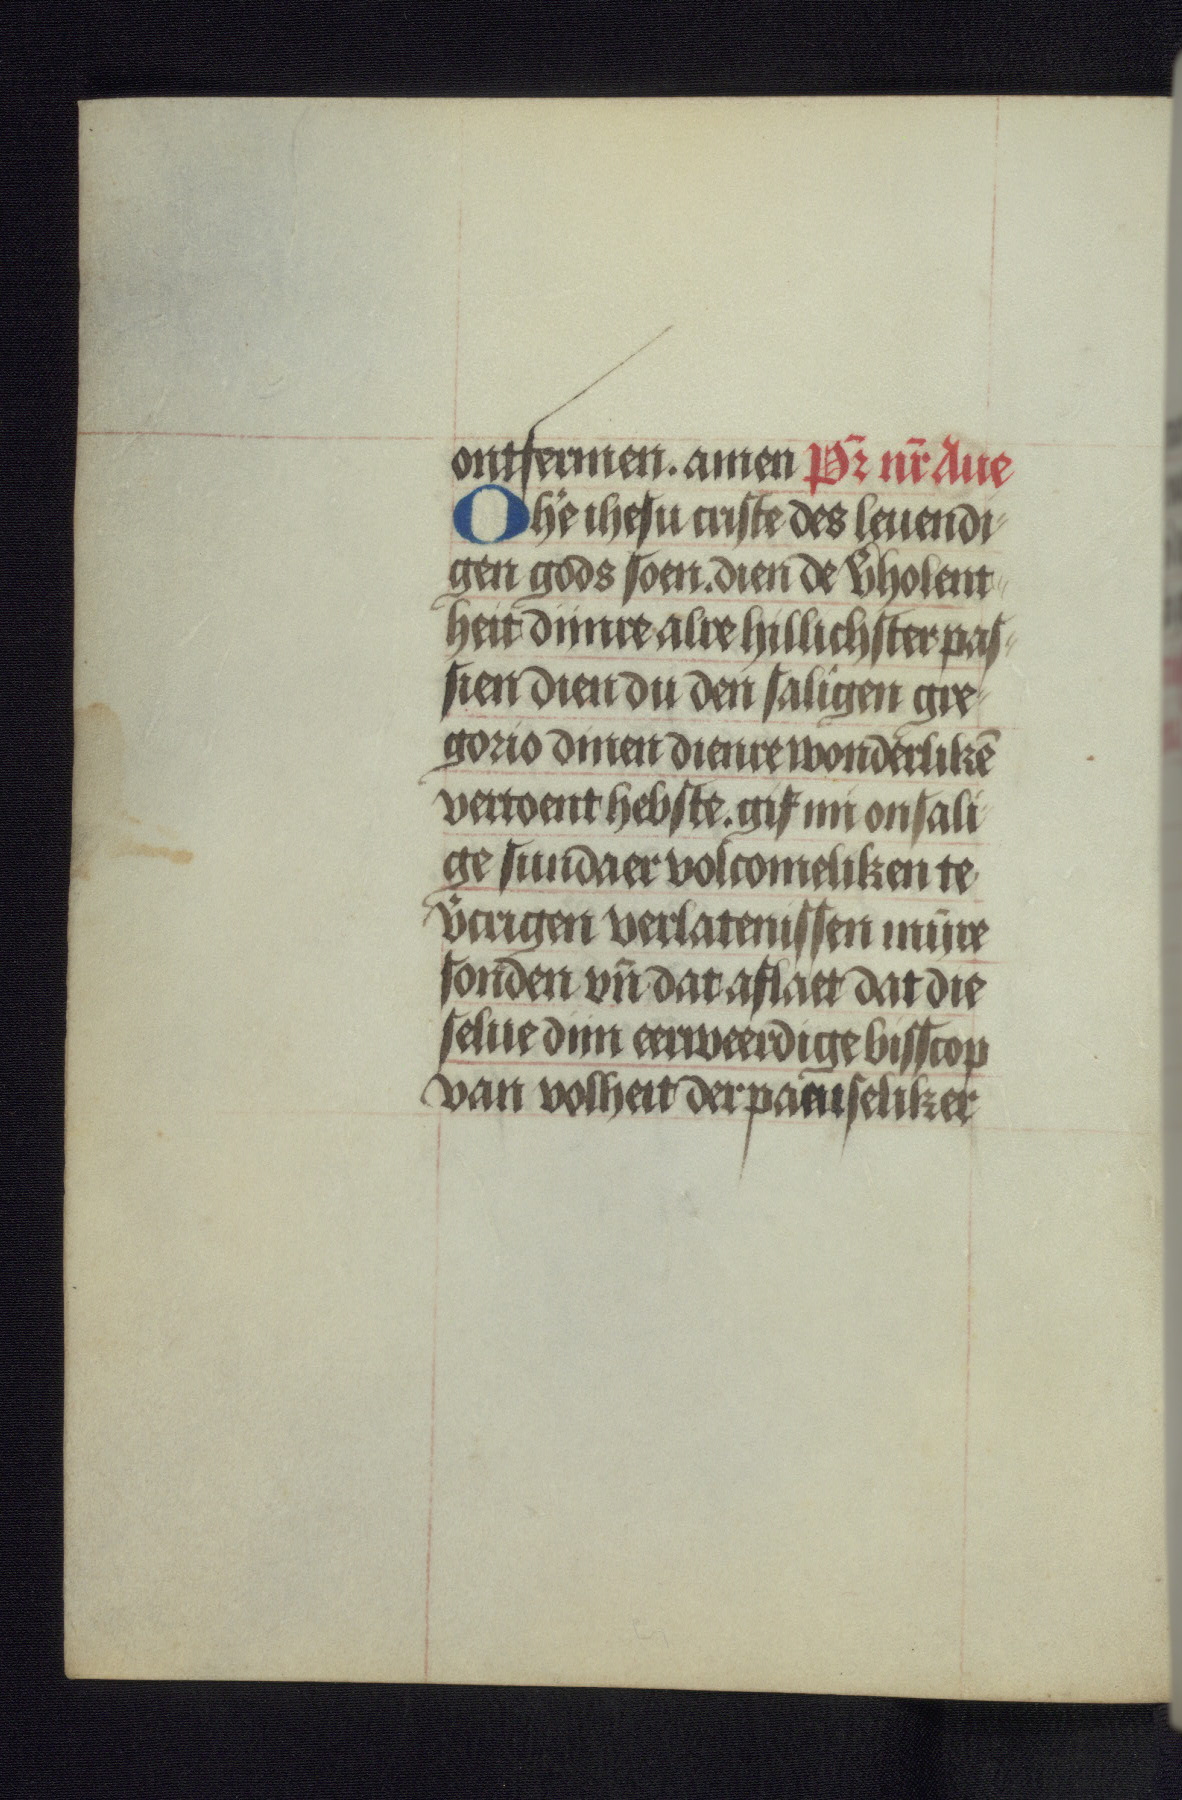 ontfermen. amen Pr̄ nr̄ Aue
O he᷑ ihesu criste des leuendi-
gen gods soen. dien de v᷑holent-
heit dijnre alre hillichster pas-
sien dien du den saligen gre-
gorio dinen dienre wonderlikē
vertoent hebste. gif mi onsali-
ge sundaer volcomeliken te
v᷑crigen verlatenissen mijnre
sonden vn̄ dat aflaet dat die
selue dijn eerweerdige bisscop
van volheit der pauseliker